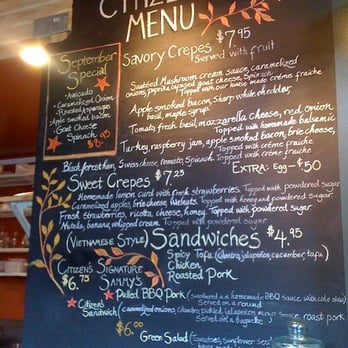 CITIZE
MENU
September
Special
Avocado
Caramelized Onion
Roasted asparagus
Apple smoked bacon
Goat Cheese
Spinach
$8.95
Savory Crepes $7.95
Served with fruit
Sautéed Mushroom cream sauce, caramelized
onions, paprika, goat cheese, Spinach
Topped with our house made crème fraiche
Apple smoked bacon, sharp white cheddar,
basil, maple syrup.
Tomato, fresh basil, mozzarella cheese, red onion
Topped with homemade balsamic
Turkey, raspberry jam, apple smoked bacon, brie cheese,
Topped with crème fraiche
Black forest ham, Swiss cheese, tomato, Spinach. Topped with crème fraiche
Extra: Egg - $.50
Sweet Crepes $7.25
Homemade lemon curd with fresh strawberries. Topped with powdered sugar
Caramelized apples, brie cheese, walnuts. Topped with honey and powdered sugar.
Fresh strawberries, ricotta cheese, honey. Topped with powdered sugar.
Nutella, banana, whipped cream. Topped with powdered sugar
(Vietnamese Style) Sandwiches $4.95
Spicy Tofu (cilantro, jalapenos, cucumber, tofu)
Chicken
Roasted Pork
Citizen's Signature
Sammy's
$6.75
Pulled BBQ Pork (smothered in homemade BBQ sauce with cole slaw)
Served on a round
Citizen's
Sandwich (caramelized onions, cilantro, pickled jalapenos, roast pork
Served on a baguette
$6.00
Green Salad (tomatoes, sunflower seed
house made